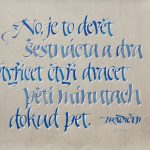 No, je to devět
šestnácta a dva
čtyřicet čtyři dvacet
pěti minutach
dokud pet.